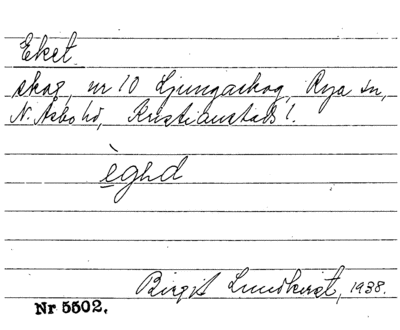 Eket
skog, nr 10 Ljungaskog, Rya sn,
N. Åsbo hd, Kristianstads l.
èghd
Birgit Lundkvist, 1938.
Nr 5502.